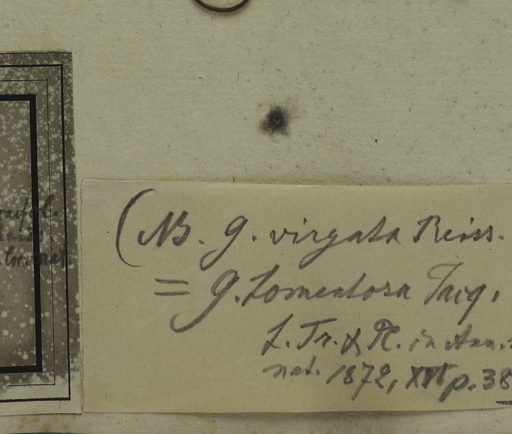 (NB. G. virgata Reiss.
= G. tomentosa Jacq.
f. Tr. & Pl. in Ann.
nat. 1872, XVI p. 38